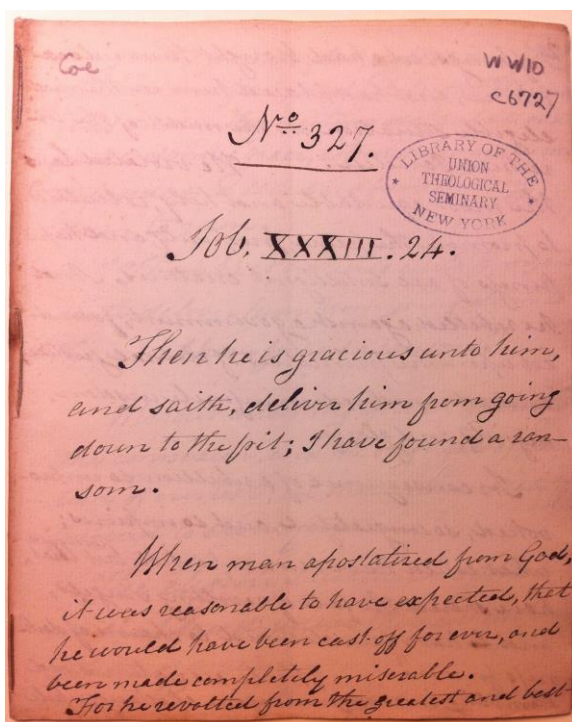 Coe
WW10
C6727
No 327.
LIBRARY OF THE
UNION
THEOLOGICAL
SEMINARY
NEW YORK
Job. XXXIII. 24.
Then he is gracious unto him,
and saith, deliver him from going
down to the pit; I have found a ran-
som.
When man apostatized from God,
it was reasonable to have expected, that
he would have been cast off for ever, and
been made completely miserable.
For he revolted from the greatest and best